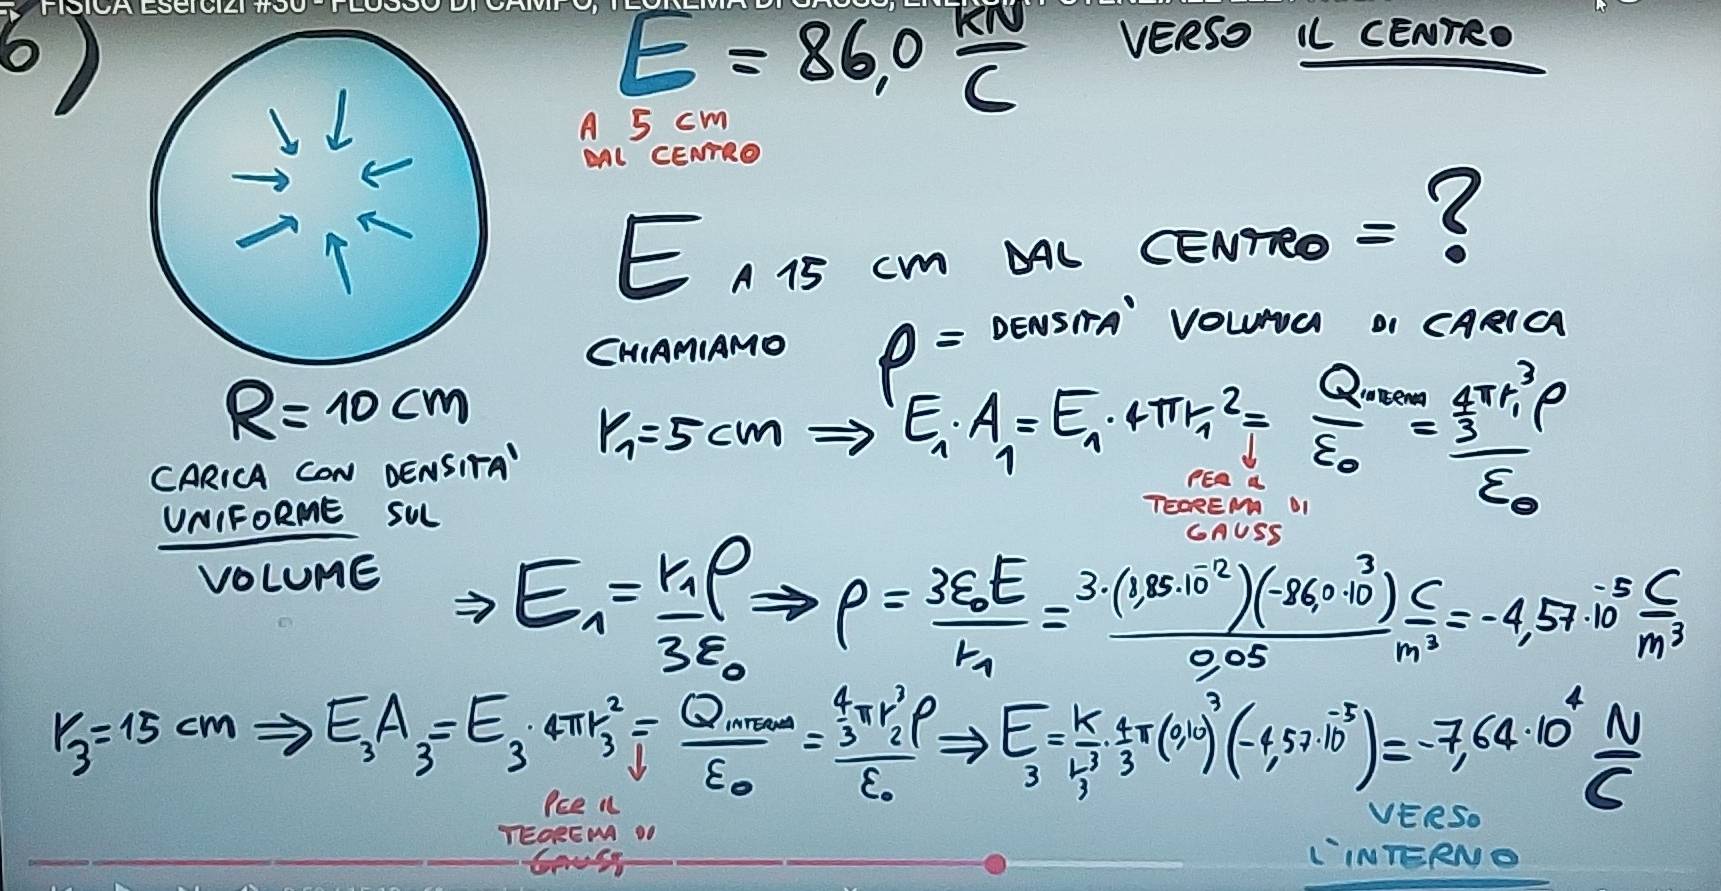 FISICA Esercizi #30 - FLUSSO DI CAMPO, TEOREMA DI GAUSS,
6)
E = 86,0 kN/C VERSO IL CENTRO
A 5 cm
DAL CENTRO
E A 15 cm DAL CENTRO = ?
CHIAMIAMO ρ = DENSITA' VOLUMICA DI CARICA
R = 10 cm
CARICA CON DENSITA'
UNIFORME SUL
VOLUME
r₁ = 5 cm ⇒ E₁·A₁ = E₁·4πr₁² = Q INTERNA/ε₀ = 4/3 πr₁³ρ/ε₀
PER IL
TEOREMA DI
GAUSS
⇒ E₁ = r₁ρ/3ε₀ ⇒ ρ = 3ε₀E/r₁ = 3·(8,85·10⁻¹²)(-86,0·10³)/0,05 C/m³ = -4,57·10⁻⁵ C/m³
r₃ = 15 cm ⇒ E₃A₃ = E₃·4πr₃² = Q INTERNA/ε₀ = 4/3 πr₂³ρ/ε₀ ⇒ E₃ = K/r₃³·4/3 π(0,10)³(-4,57·10⁻⁵) = -7,64·10⁴ N/C
PER IL
TEOREMA DI
GAUSS
VERSO
L'INTERNO